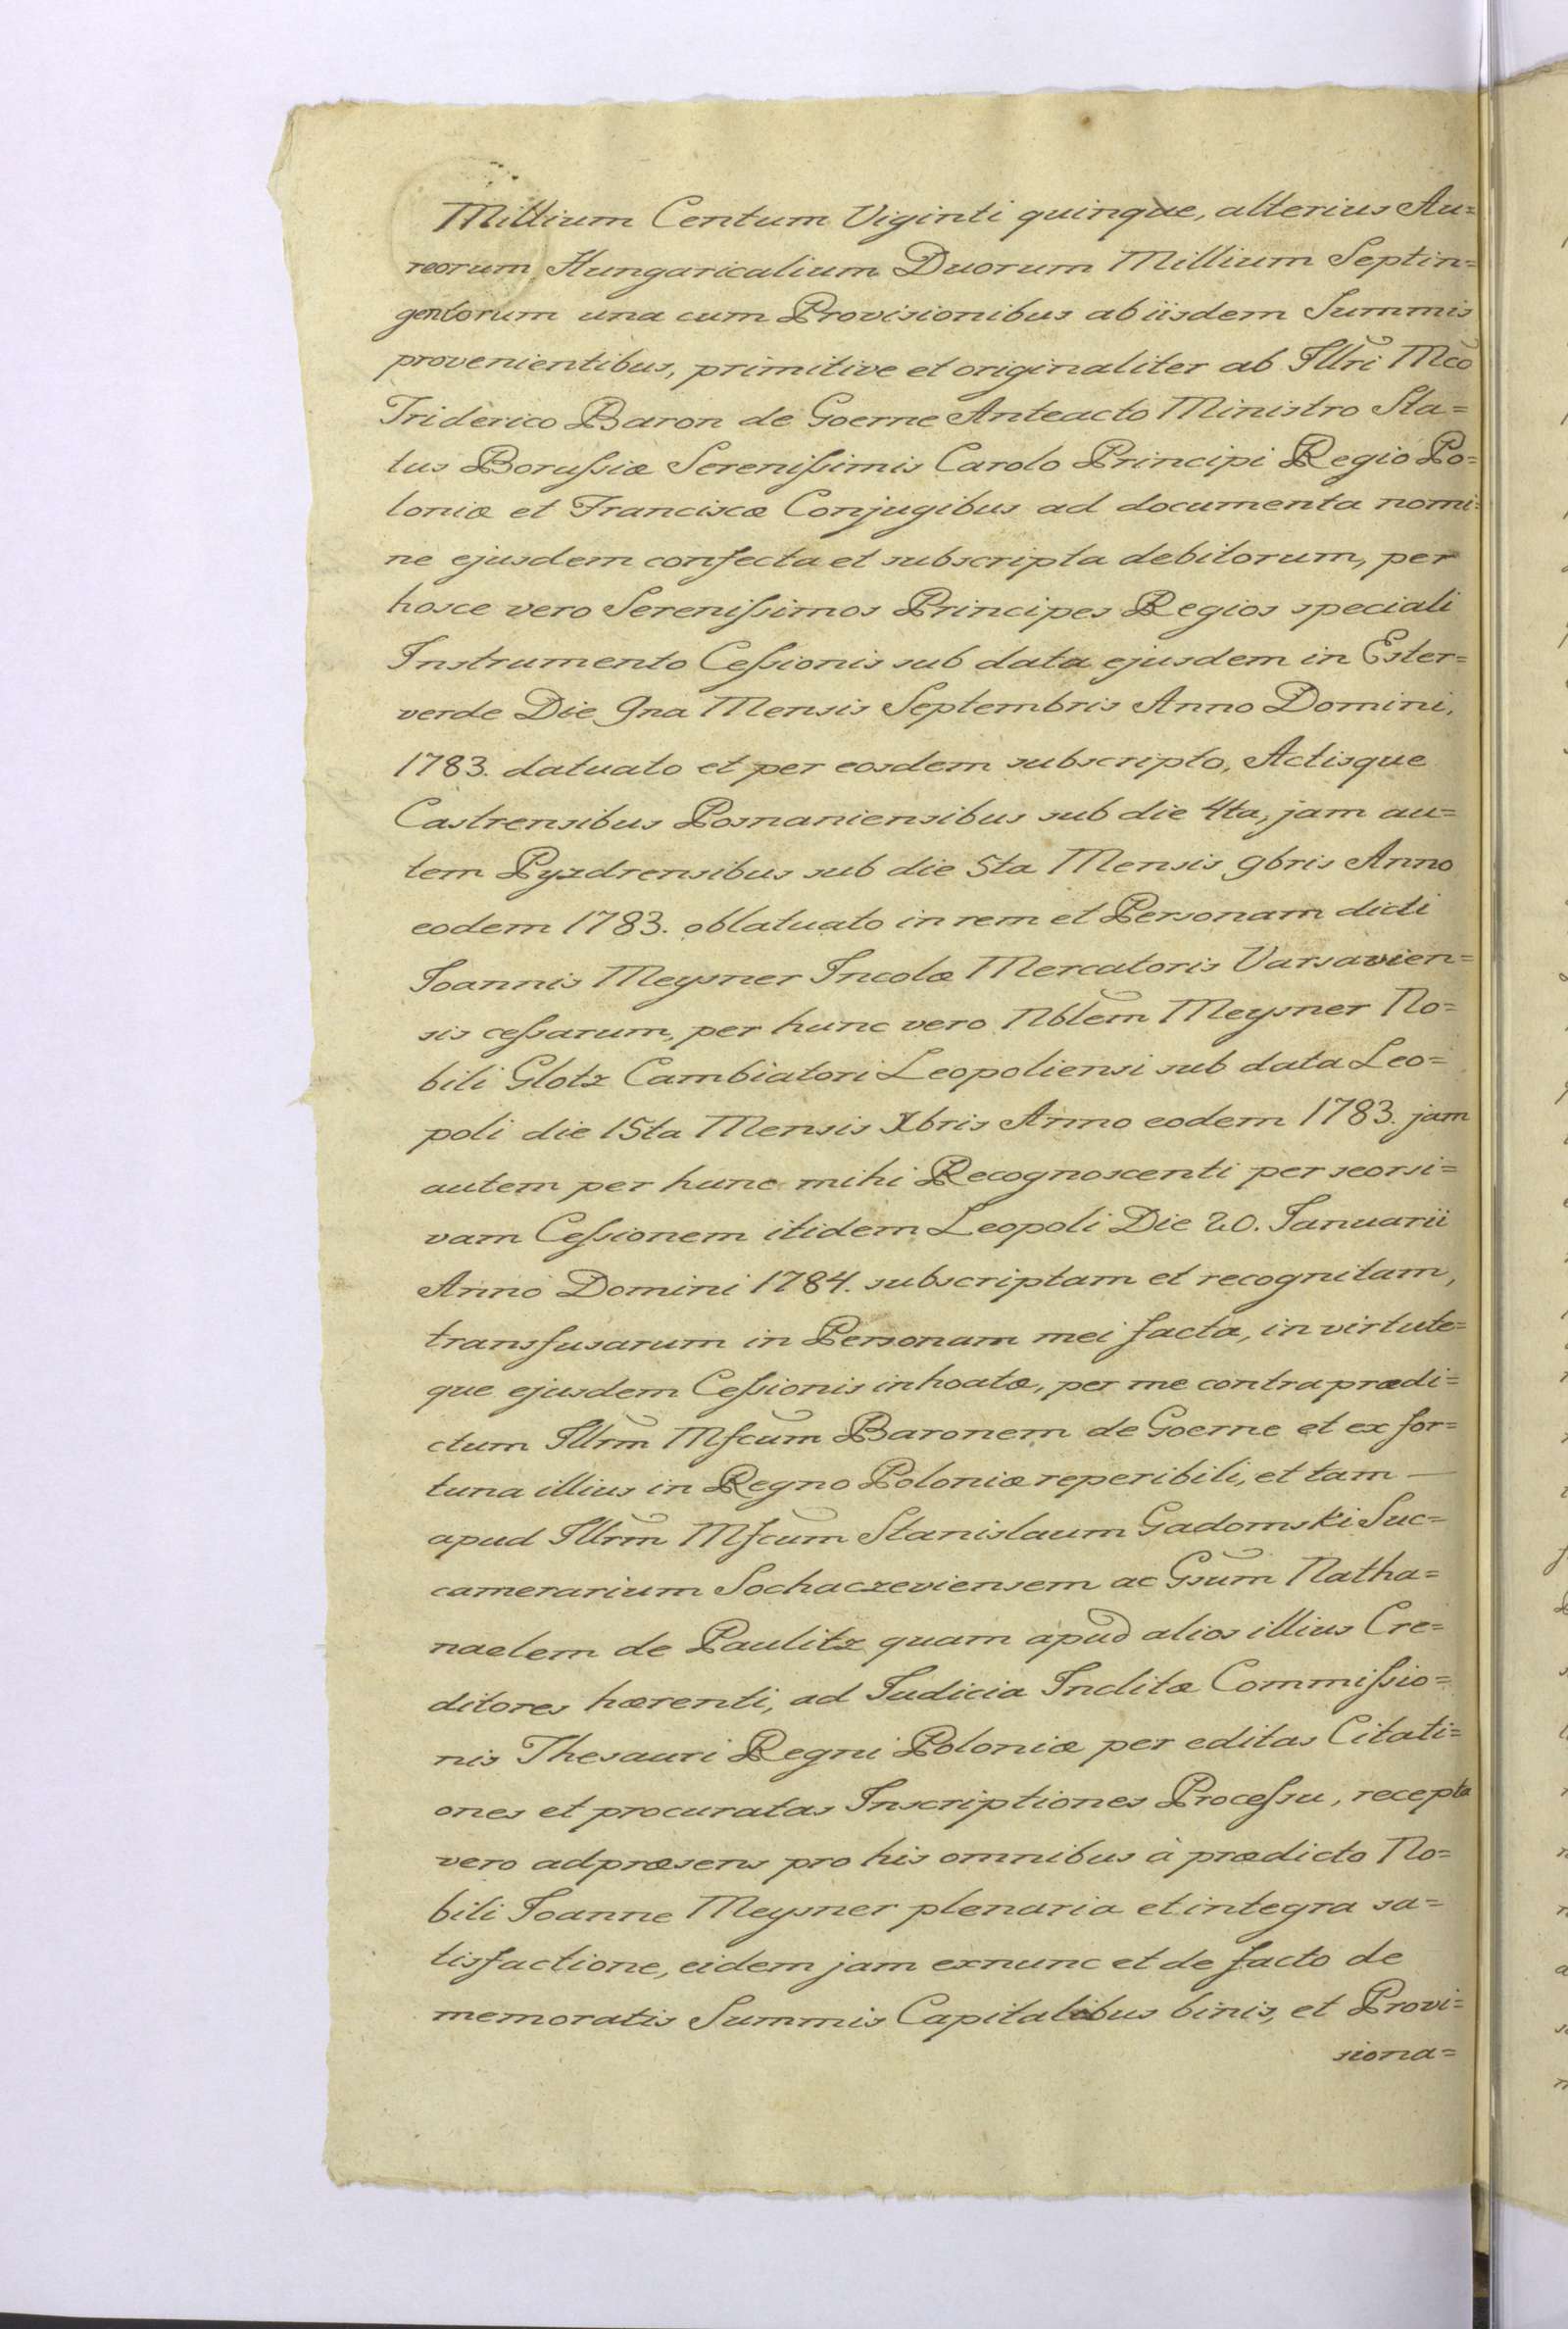 Millium Centum Viginti quinque, alterius Au=
reorum Hungaricalium Duorum Millium Septin=
gentorum una cum Provisionibus ab iisdem Summis
provenientibus, primitive et originaliter ab Illri Mco
Friderico Baron de Goerne Anteacto Ministro Sta=
tus Borußiæ Serenißimis Carolo Principi Regio Po=
loniæ et Franciscæ Conjugibus ad documenta nomi=
ne ejusdem confecta et subscripta debitorum, per
hosce vero Serenißimos Principes Regios speciali
Instrumento Ceßionis sub data ejusdem in Ester=
verde Die 9na Mensis Septembris Anno Domini,
1783. datuato et per eosdem subscripto, Actisque
Castrensibus Posnaniensibus sub die 4ta, jam au=
tem Pyzdrensibus sub die 5ta Mensis 9bris Anno
eodem 1783. oblatuato in rem et Personam dicti
Joannis Meysner Incolæ Mercatoris Varsavien=
sis ceßarum, per hunc vero Nblem Meysner No=
bili Glotz Cambiatori Leopoliensi sub data Leo=
poli die 15ta Mensis Xbris Anno eodem 1783. jam
autem per hunc mihi Recognoscenti per seorsi=
vam Ceßionem itidem Leopoli Die 20. Januarii
Anno Domini 1784. subscriptam et recognitam,
transfusarum in Personam mei facta, in virtute=
que ejusdem Ceßionis inhoatæ, per me contra prædi=
ctum Illrm Mfcum Baronem de Goerne et ex for=
tuna illius in Regno Poloniæ reperibili, et tam —
apud Illrm Mfcum Stanislaum Gadomski Suc=
camerarium Sochaczeviensem ac Gsum Natha=
naelem de Paulitz quam apud alios illius Cre=
ditores hærenti, ad Judicia Inclitæ Commißio=
nis Thesauri Regni Poloniæ per editas Citati=
ones et procuratas Inscriptiones Proceßu, recepta
vero ad præsens pro his omnibus à prædicto No=
bili Joanne Meysner plenaria et integra sa=
tisfactione, eidem jam exnunc et de facto de
memoratis Summis Capitalibus binis, et Provi=
siona=